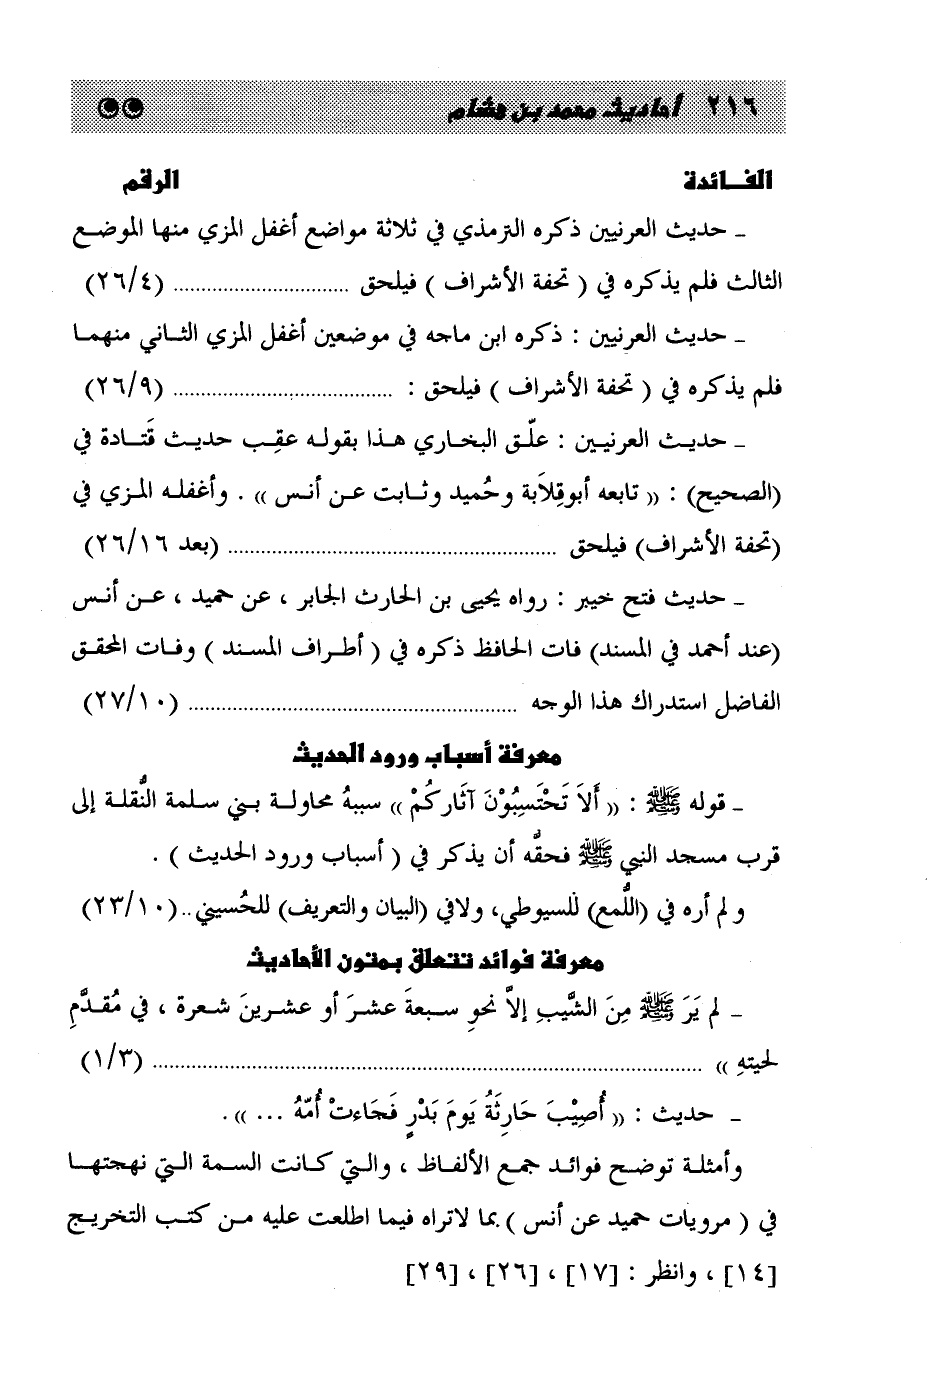 ٢١٦ أحاديث محمد بن هشام
الفــائدة الرقم
ـ حديث العرنيين ذكره الترمذي في ثلاثة مواضع أغفل المزي منها الموضـع
الثالث فلم يذكره في ( تحفة الأشراف ) فيلحق ................................ (٢٦/٤)
ـ حديث العرنيين : ذكره ابن ماجه في موضعين أغفل المزي الثـاني منهمـا
فلم يذكره في ( تحفة الأشراف ) فيلحق : ........................................ (٢٦/٩)
ـ حديـث العرنيـين : علّـق البخـاري هـذا بقولـه عقِـب حديـث قَتـادة في
(الصحيح) : « تابعه أبوقِلاَبة وحُميد وثـابت عـن أنـس » . وأغفلـه المـزي في
(تحفة الأشراف) فيلحق ............................................................ (بعد ٢٦/١٦)
ـ حديث فتح خيبر : رواه يحيى بن الحارث الجابر ، عن حميد ، عـن أنـس
(عند أحمد في المسند) فات الحافظ ذكره في ( أطـراف المسـند ) وفـات المحقق
الفاضل استدراك هذا الوجه ............................................................ (٢٧/١٠)
معرفة أسباب ورود الحديث
ـ قوله ﷺ : « أَلاَ تَحْتَسِبُوْنَ آثَارَكُمْ » سببهُ محاولـة بـني سـلمة النُّقلـة إلى
قرب مسجد النبي ﷺ فحقُّه أن يذكر في ( أسباب ورود الحديث ) .
و لم أره في (اللُّمع) للسيوطي، ولافي (البيان والتعريف) للحُسيني..(٢٣/١٠)
معرفة فوائد تتعلق بمتون الأحاديث
ـ لم يَرَ ﷺ مِنَ الشَّيبِ إلاَّ نحوِ سـبعةَ عشـرَ أو عشـرينَ شعرة ، في مُقـدَّمِ
لحيتهِ » .................................................................................................... (١/٣)
ـ حديث : « أُصِيْبَ حَارِثَةُ يَومَ بَدْرٍ فَجَاءتْ أُمّهُ ... » .
وأمثلـة توضـح فوائـد جمـع الألفـاظ ، والـتي كـانت السـمة الـتي نهجتهـا
في ( مرويات حميد عن أنس ) بما لاتراه فيما اطلعت عليه مـن كتـب التخريـج
[١٤] ، وانظر : [١٧] ، [٢٦] ، [٢٩]